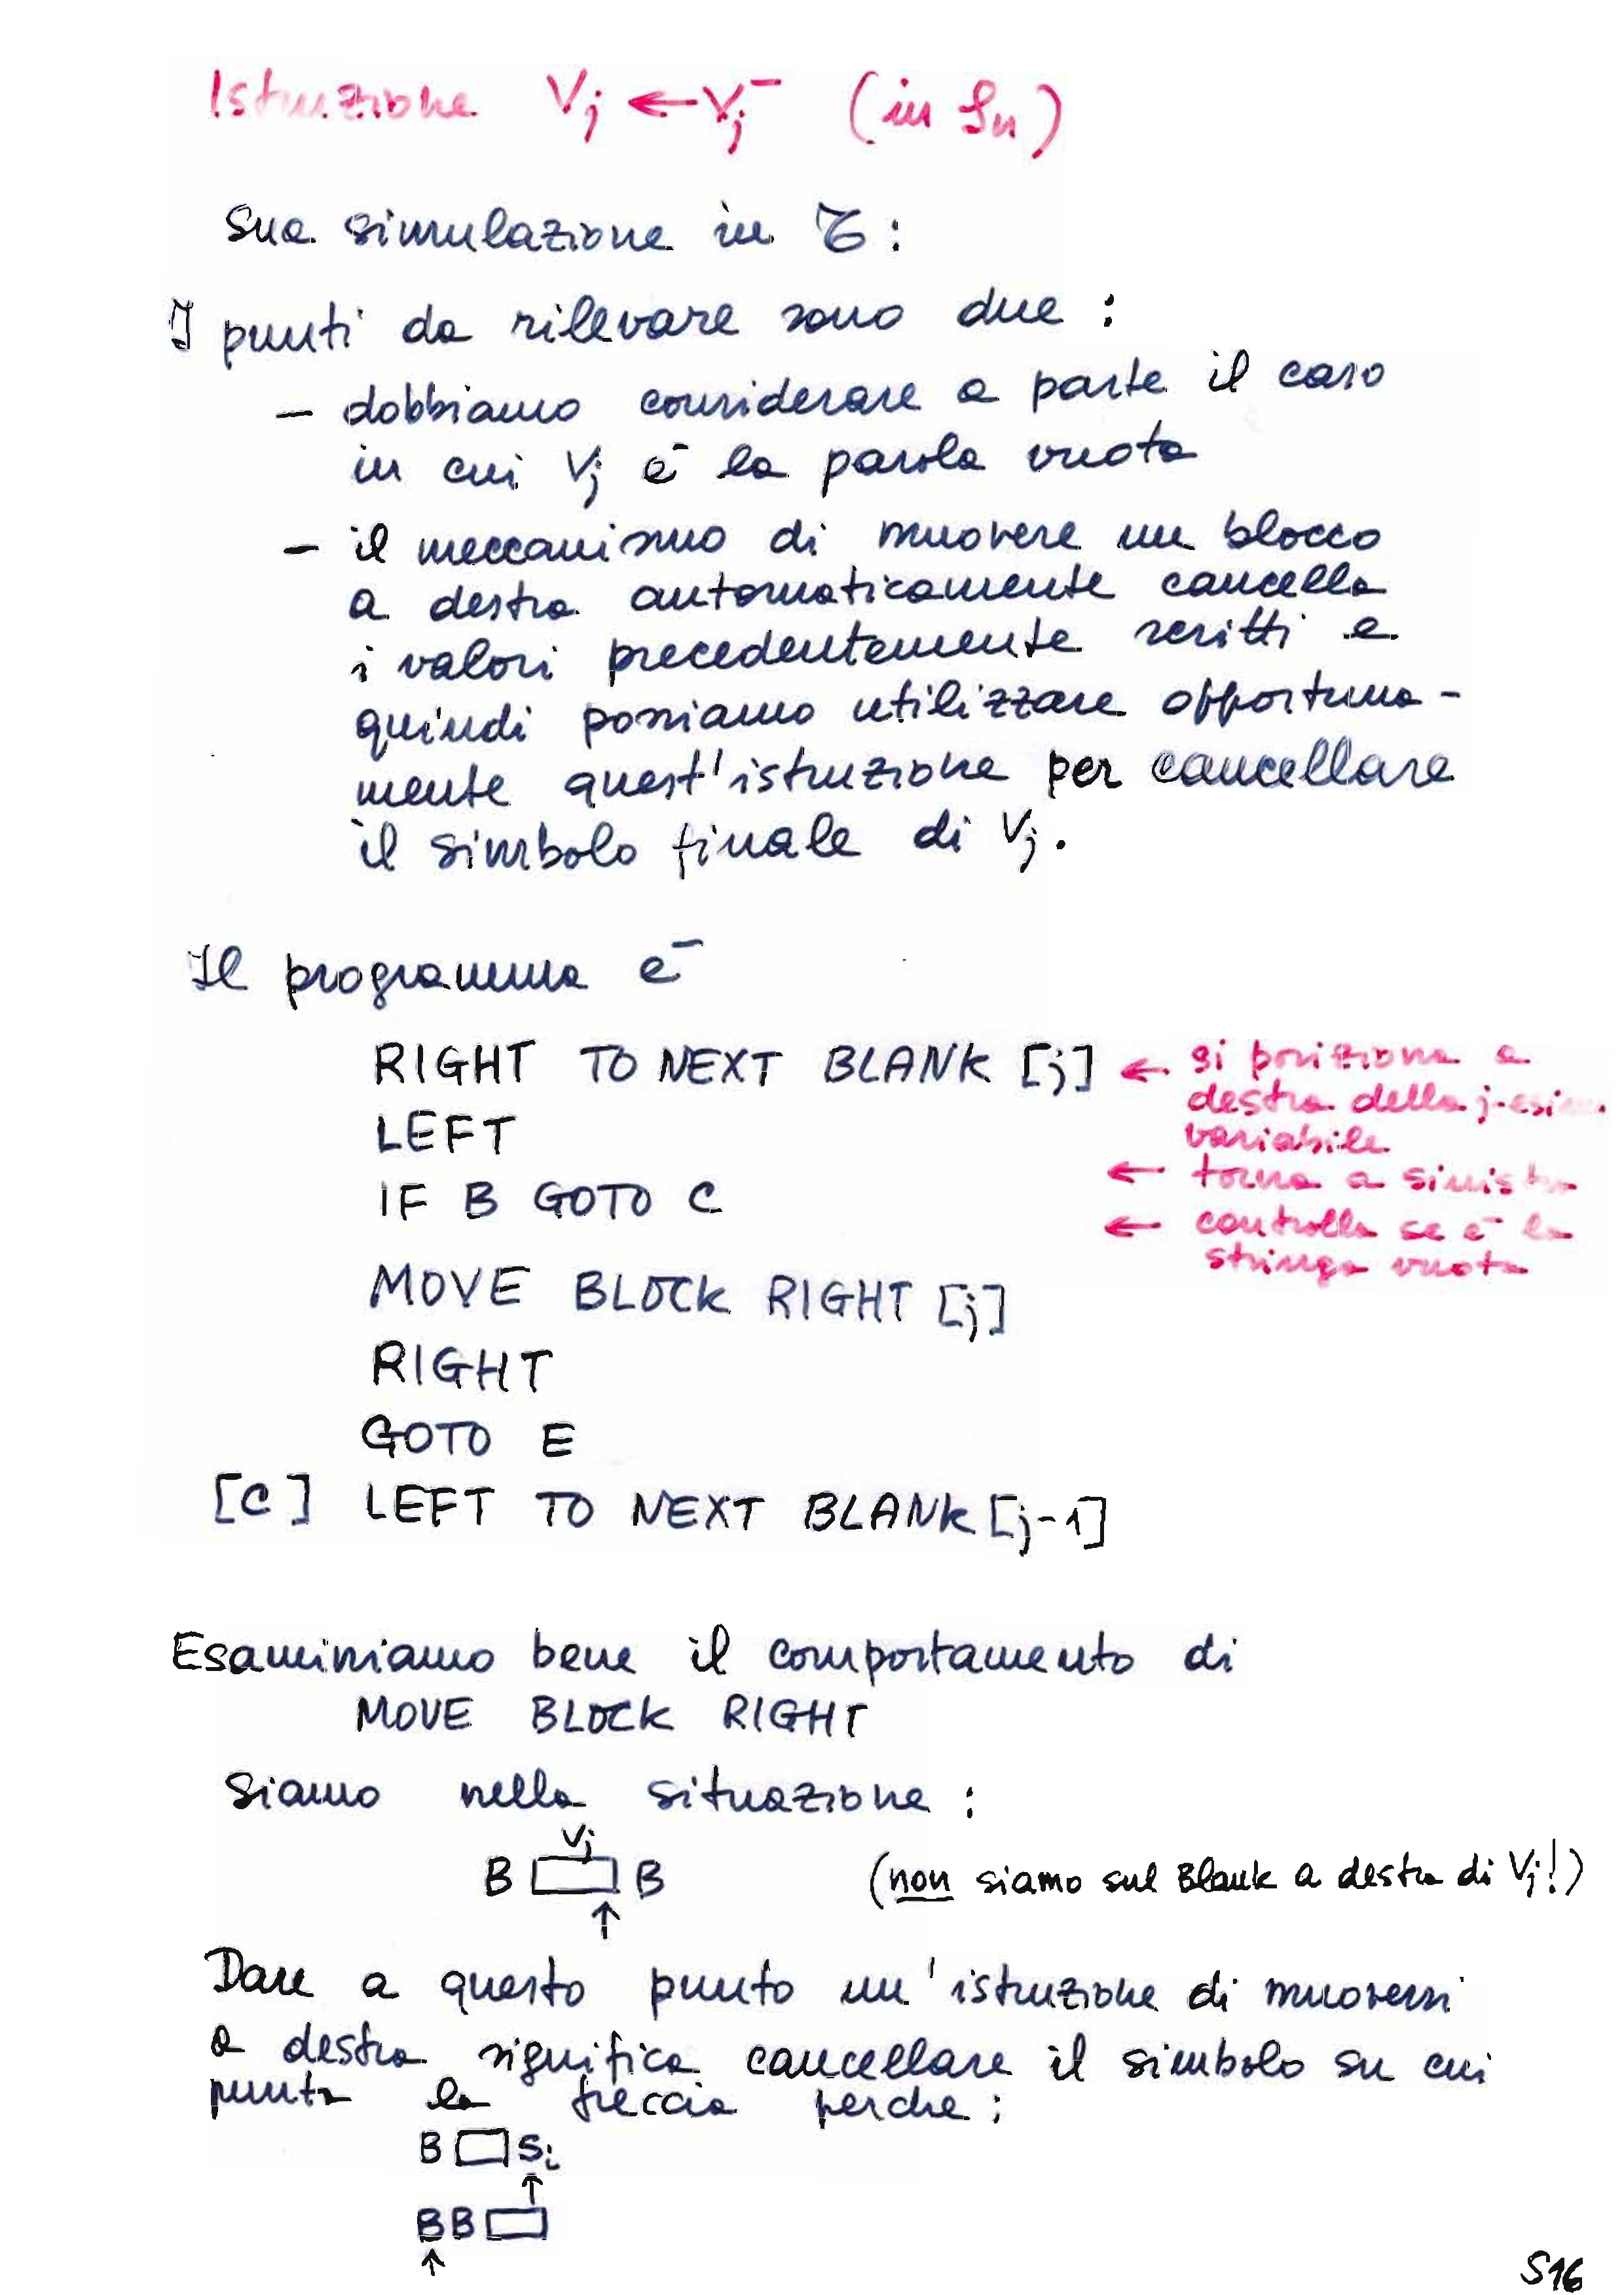 Istruzione Vj ← Vj⁻ (in Sn)
Sua simulazione in 𝒯:
I punti da rilevare sono due:
– dobbiamo considerare a parte il caso
in cui Vj è la parola vuota
– il meccanismo di muovere un blocco
a destra automaticamente cancella
i valori precedentemente scritti e
quindi possiamo utilizzare opportuna-
mente quest'istruzione per cancellare
il simbolo finale di Vj.
Il programma è
RIGHT TO NEXT BLANK [j] ← si posiziona a
destra della j-esi
variabile
LEFT
← torna a sinist
IF B GOTO C
← controlla se è la
stringa vuota
MOVE BLOCK RIGHT [j]
RIGHT
GOTO E
[C] LEFT TO NEXT BLANK [j-1]
Esaminiamo bene il comportamento di
MOVE BLOCK RIGHT
Siamo nella situazione:
Vj
B B (non siamo sul Blank a destra di Vj!)
↑
Dare a questo punto un'istruzione di muoversi
a destra significa cancellare il simbolo su cui
punta la freccia perche:
B Si
↑
BB
↑
S16